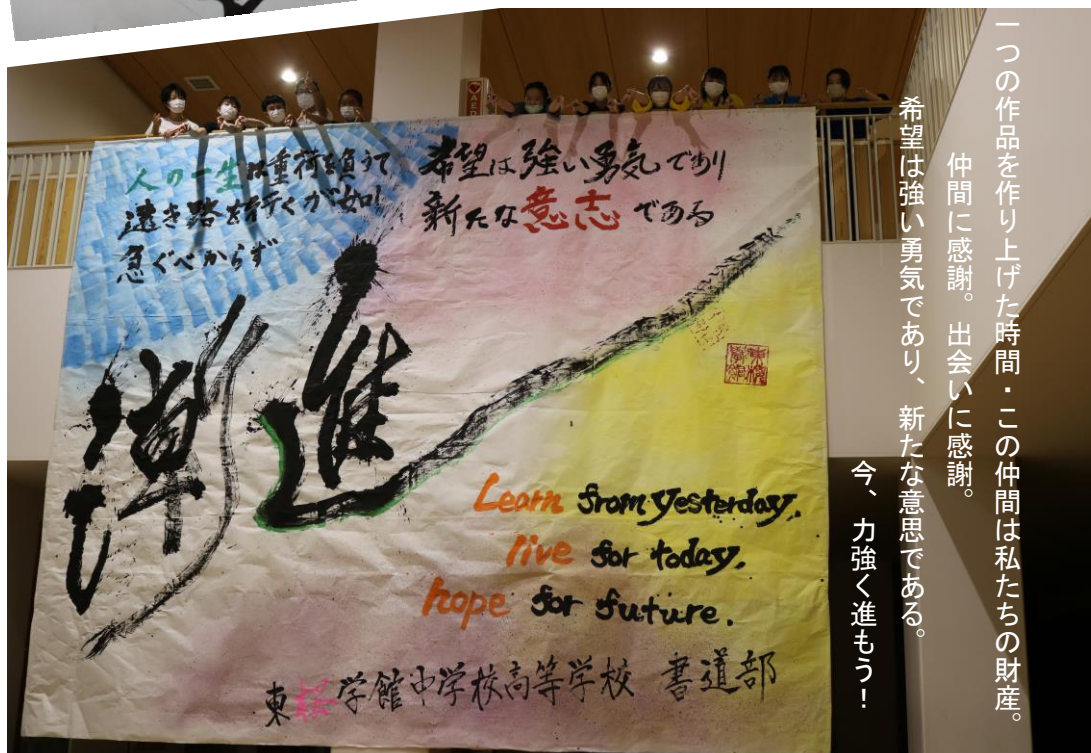 一つの作品を作り上げた時間・この仲間は私たちの財産。
仲間に感謝。出会いに感謝。
希望は強い勇気であり、新たな意思である。
今、力強く進もう！
人の一生は重荷を負うて
遠き路を行くが如し
急ぐべからず
希望は強い勇気であり
新たな意志である
漸進
Learn from yesterday.
live for today.
hope for future.
東桜学館中学校高等学校 書道部
AED